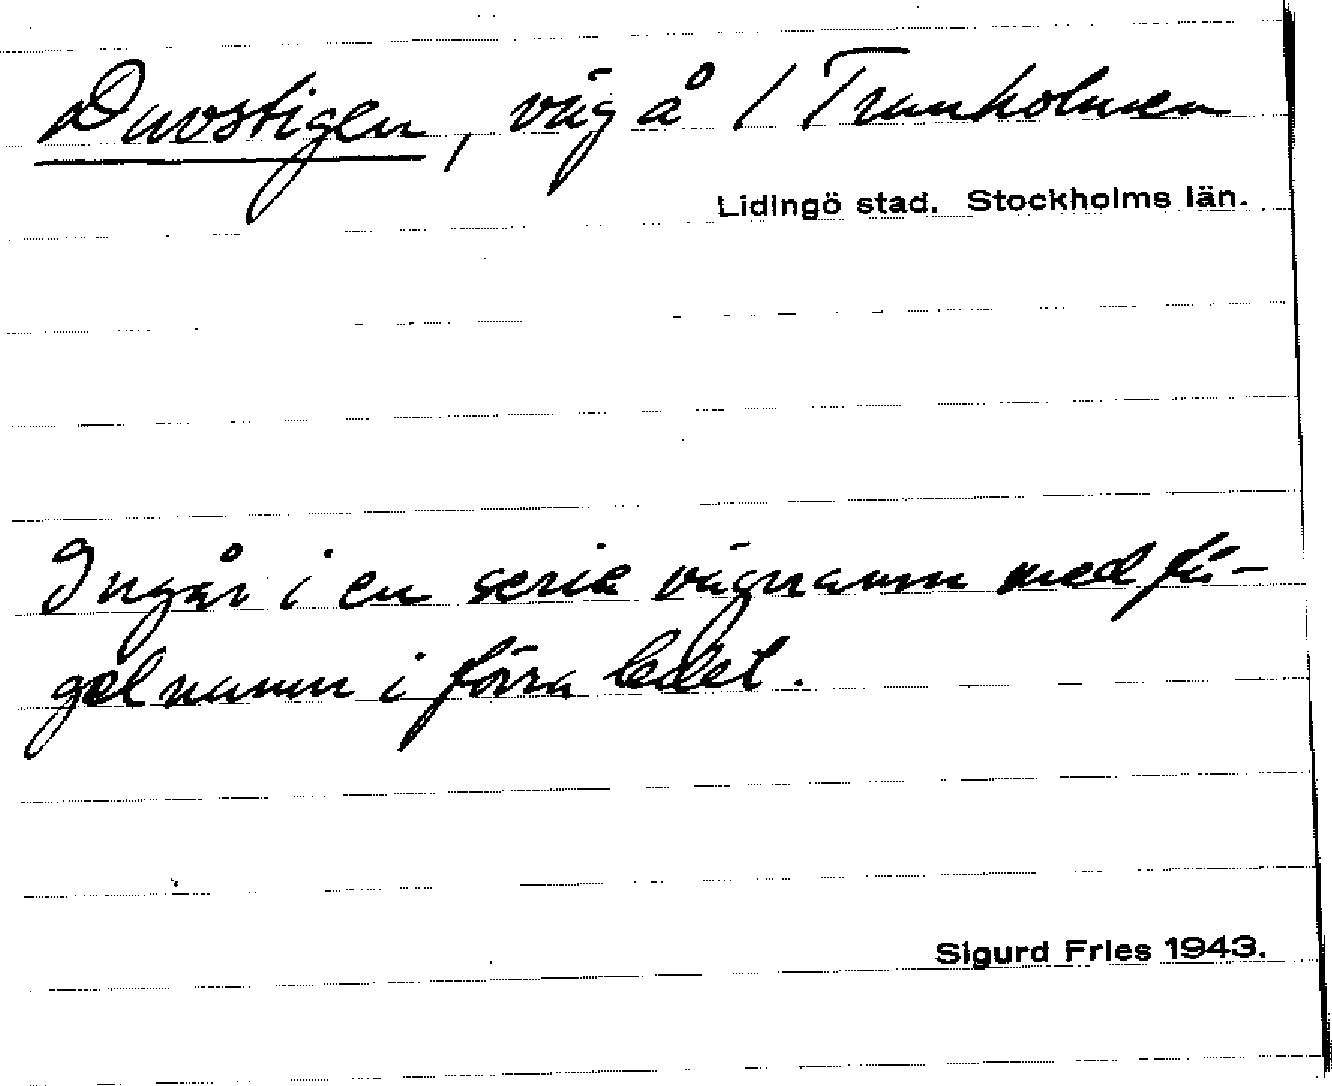 Duvstigen, väg å / Tranholmen
Lidingö stad. Stockholms län.
Ingår i en serie vägnamn med få-
gelnamn i förra ledet.
Sigurd Fries 1943.